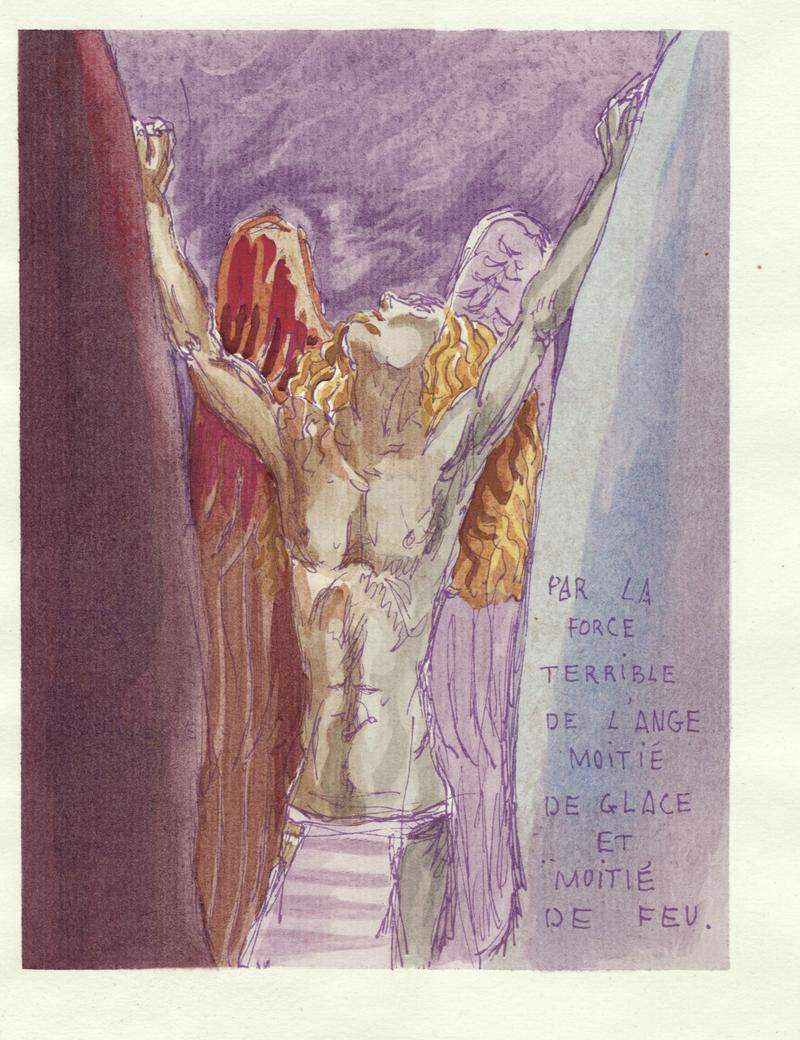 PAR LA
FORCE
TERRIBLE
DE L'ANGE
MOITIÉ
DE GLACE
ET
MOITIÉ
DE FEU.